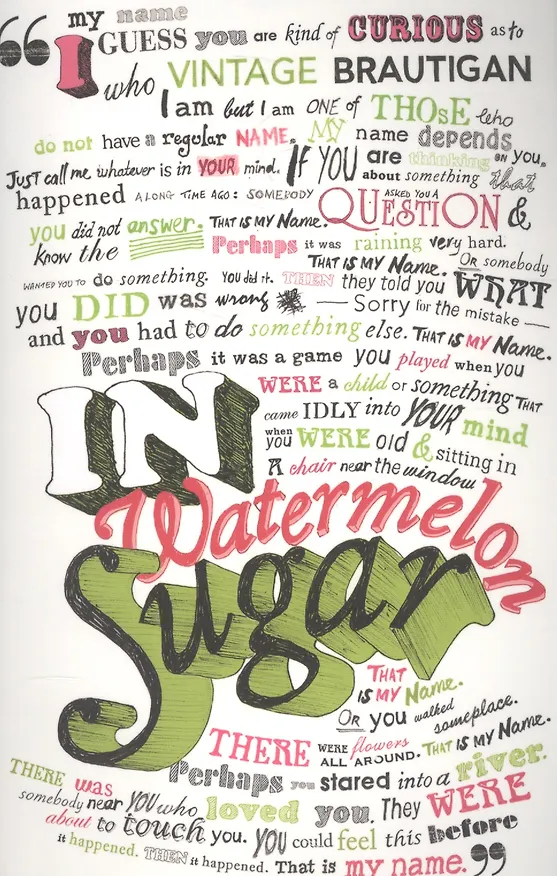 “ my name
I GUESS you are kind of CURIOUS as to
who VINTAGE BRAUTIGAN
I am but I am ONE of THOsE who
do not have a regular NAME. MY name depends
on you.
Just call me whatever is in YOUR mind. IF YOU are thinking
about something that
happened A LONG TIME AGO: SOMEBODY ASKED YOU A QUESTION &
you did not answer. THAT IS MY Name.
know the Perhaps it was raining very hard.
THAT IS MY Name. OR somebody
WANTED YOU TO do something. YOU did it. THEN they told you WHAT
you DID was wrong — Sorry for the mistake —
and you had to do something else. THAT IS MY Name.
Perhaps it was a game you played when you
WERE a child or something THAT
came IDLY into YOUR mind
when you WERE old & sitting in
A chair near the window
IN
Watermelon
Sugar
THAT
IS MY Name.
OR you walked someplace.
THERE WERE flowers ALL AROUND. THAT IS MY Name.
Perhaps you stared into a river.
THERE was
somebody near YOU who loved you. They WERE
about to touch you. YOU could feel this before
it happened. THEN it happened. That is my name. ”